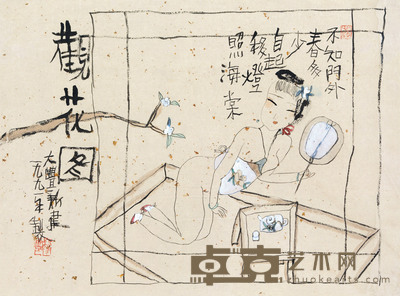 不知門外
春多
少
自起
移燈
照海棠
觀花图
大豐新建
一九九一年製
卓克艺术网
zhuokearts.com